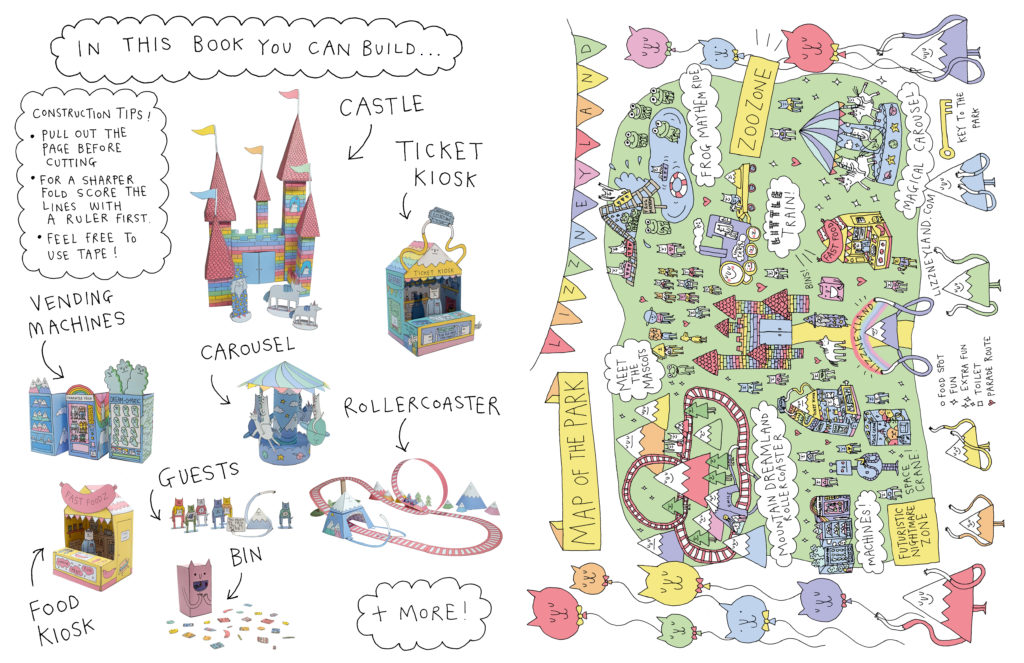 IN THIS BOOK YOU CAN BUILD...
CONSTRUCTION TIPS!
• PULL OUT THE
PAGE BEFORE
CUTTING
• FOR A SHARPER
FOLD SCORE THE
LINES WITH
A RULER FIRST.
• FEEL FREE TO
USE TAPE!
CASTLE
TICKET
KIOSK
TICKET KIOSK
VENDING
MACHINES
CAROUSEL
ROLLERCOASTER
GUESTS
FAST FOODZ
FOOD
KIOSK
BIN
+ MORE!
LIZZNEYLAND
MAP OF THE PARK
ZOO ZONE
FROG MAYHEM RIDE
MAGICAL CAROUSEL
KEY TO THE
PARK
LITTLE
TRAIN!
FAST FOODZ
BINS!
LIZZNEYLAND.COM
LIZZNEYLAND
MEET
THE
MASCOTS
MOUNTAIN DREAMLAND
ROLLERCOASTER
SPACE
CRANE!
MACHINES!
FUTURISTIC
NIGHTMARE
ZONE
FOOD SPOT
FUN
EXTRA FUN
TOILET
PARADE ROUTE